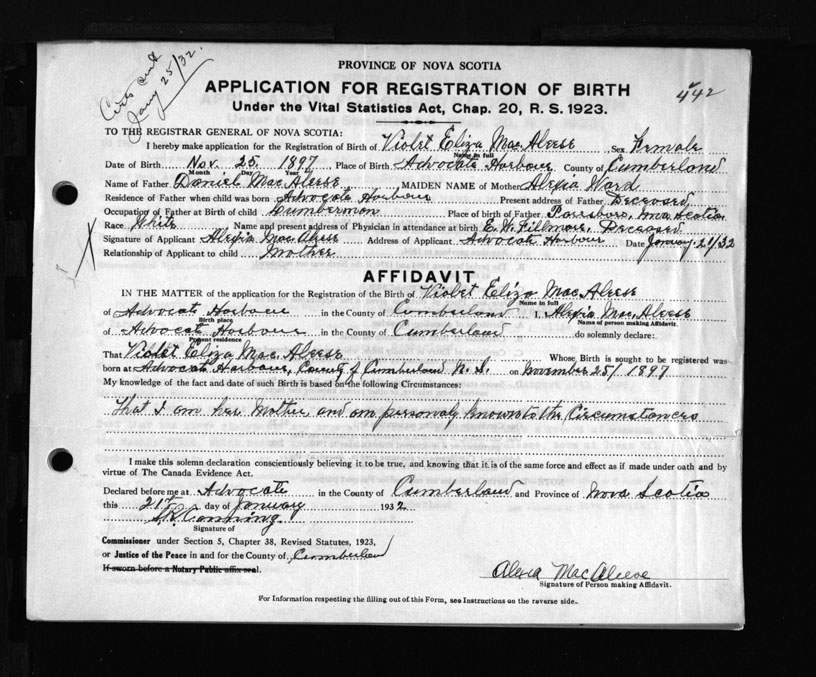 Certs sent
Jany 25/32.
PROVINCE OF NOVA SCOTIA
APPLICATION FOR REGISTRATION OF BIRTH
442
Under the Vital Statistics Act, Chap. 20, R. S. 1923.
TO THE REGISTRAR GENERAL OF NOVA SCOTIA:
I hereby make application for the Registration of Birth of Violet Eliza Mac Aleese Sex Female
Name in full
Date of Birth Nov. 25 1897 Place of Birth Advocate Harbour County of Cumberland
Month Day Year
Name of Father Daniel Mac Aleese MAIDEN NAME of Mother Alexia Ward
Residence of Father when child was born Advocate Harbour Present address of Father Deceased
Occupation of Father at Birth of child Lumberman Place of birth of Father Parrsboro, Nova Scotia
Race White Name and present address of Physician in attendance at birth E. W. Fillmore, Deceased
Signature of Applicant Alexia Mac Aleese Address of Applicant Advocate Harbour Date January 21/32
Relationship of Applicant to child Mother
AFFIDAVIT
IN THE MATTER of the application for the Registration of the Birth of Violet Eliza Mac Aleese
Name in full
of Advocate Harbour in the County of Cumberland I, Alexia Mac Aleese
Birth place Name of person making Affidavit.
of Advocate Harbour in the County of Cumberland do solemnly declare:
Present residence
That Violet Eliza Mac Aleese Whose Birth is sought to be registered was
born at Advocate Harbour, County of Cumberland N. S. on November 25/1897
My knowledge of the fact and date of such Birth is based on the following Circumstances:
That I am her Mother and am personaly known to the Circumstances
I make this solemn declaration conscientiously believing it to be true, and knowing that it is of the same force and effect as if made under oath and by
virtue of The Canada Evidence Act.
Declared before me at Advocate in the County of Cumberland and Province of Nova Scotia
this 21st day of January 1932
Signature of
Commissioner under Section 5, Chapter 38, Revised Statutes, 1923,
or Justice of the Peace in and for the County of Cumberland
If sworn before a Notary Public affix seal.
Alexia MacAleese
Signature of Person making Affidavit.
For Information respecting the filling out of this Form, see Instructions on the reverse side.